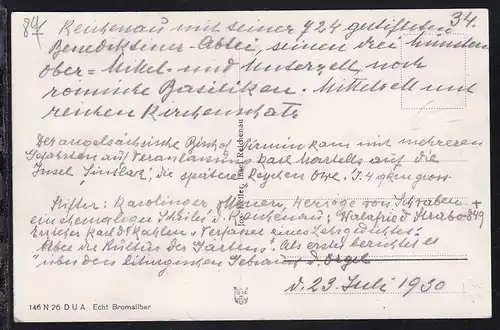 84/ 34.
Reichenau mit seiner 724 gestifteten
Benediktiner-Abtei, seinen drei Münstern
ober= Mittel= und Unterzell, noch
romische Basiliken. Mittelzell mit
reichen Kirchenschatz
Der angelsächsische Bischof Pirmin kam mit mehreren
Gefährten auf Veranlassung Karl Martells auf die
Insel die spätere Reichen
Stifter: Karolinger, Ottonen, Herzöge von Schwaben
ein ehemaliger Schüler v. Reichenau: Walafried Strabo + 849
Erzieher Karl d. Kahlen. Verfasser eines Lehrgedichtes:
"Über die Kultur des Gartens". Als erster berichtet er
über den liturgischen Gebrauch d. Orgel
d. 23. Juli 1930
Insel Reichenau
146 N 26 D U A Echt Bromsilber